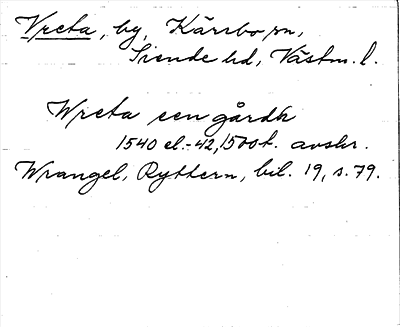 Vreta, by, Kärrbo sn,
Siende hd, Västm. l.
Wreta een gårdh
1540 el.-42, 1500t. avskr.
Wrangel, Ryttern, bil. 19, s. 79.